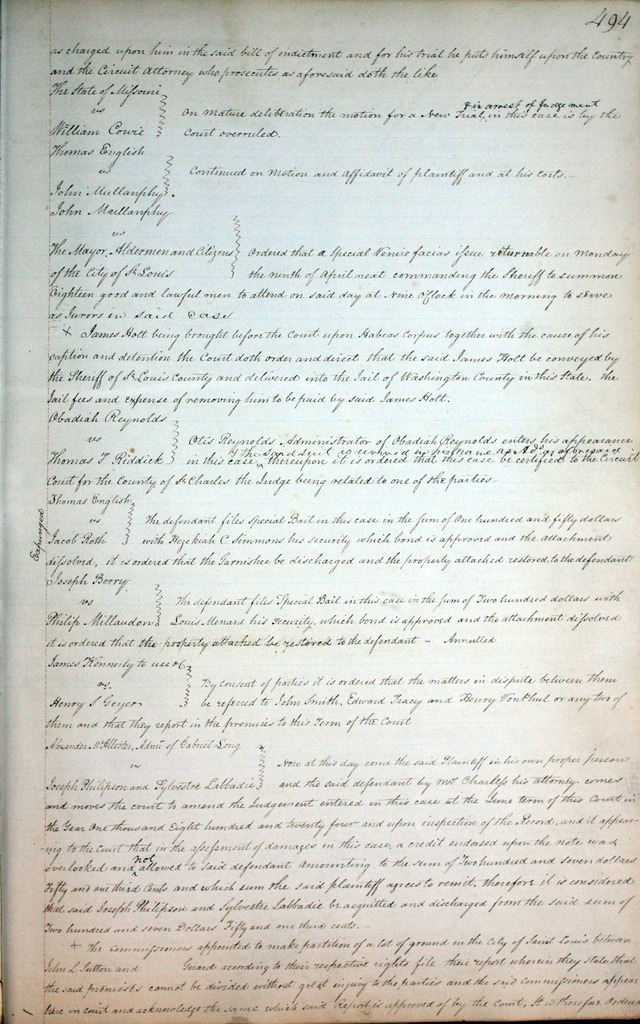 494
as charged upon him in the said bill of indictment and for his trial he puts himself upon the Country
and the Circuit Attorney who prosecutes as aforesaid doth the like
The State of Missouri
vs
& in arrest of Judgement
On mature deliberation the motion for a New Trial, in this case is by the
William Cowie
Court overruled.
Thomas English
vs
Continued on motion and affidavit of plaintiff and at his costs. —
John Mullanphy.
John Mullanphy
vs
The Mayor, Aldermen and Citizens
Ordered that a Special Venire facias issue returnable on Monday
of the City of St Louis
the ninth of April next commanding the Sheriff to summon
Eighteen good and lawful men to attend on said day at Nine O'Clock in the morning to serve
as Jurors in said case
+ James Holt being brought before the Court upon Habeas Corpus together with the cause of his
caption and detention the Court doth order and direct that the said James Holt be conveyed by
the Sheriff of St Louis County and delivered into the Jail of Washington County in this State. the
Jail fees and expense of removing him to be paid by said James Holt.
Obadiah Reynolds
vs
Otis Reynolds Administrator of Obadiah Reynolds enters his appearance
& the said suit is revived in his name as Adr as aforesaid
Thomas F. Riddick
in this case, thereupon it is ordered that this case be certified to the Circuit
Court for the County of St Charles the Judge being related to one of the parties
Expunged
Thomas English
vs
The defendant files special Bail in this case in the sum of One hundred and fifty dollars
Jacob Roth
with Hezekiah C Simmons his security which bond is approved and the attachment
dissolved, it is ordered that the Garnishee be discharged and the property attached restored to the defendant
Joseph Berry
vs
The defendant files Special Bail in this case in the sum of Two hundred dollars with
Philip Millaudon
Louis Menard his security, which bond is approved and the attachment dissolved
it is ordered that the property attached be restored to the defendant — Annulled
James Kennerly to use &c
vs.
By consent of parties it is ordered that the matters in dispute between them
Henry S Geyer
be referred to John Smith, Edward Tracy and Henry Von Phul or any two of
them and that they report in the premises to this Term of the Court
Alexander McAllister, Admr of Gabriel Long
vs
Now at this day come the said Plaintiff in his own proper person
Joseph Philipson and Sylvestre Labbadie
and the said defendant by Mr Charless his attorney comes
and moves the court to amend the Judgement entered in this case at the June term of this Court in
the Year One thousand Eight hundred and twenty four and upon inspection of the Record, and it appear-
ing to the Court that in the assessment of damages in this case, a credit endorsed upon the note was
overlooked and not allowed to said defendant amounting to the sum of Two hundred and seven dollars
Fifty and one third Cents and which sum the said plaintiff agrees to remit, therefore it is considered
that said Joseph Philipson and Sylvestre Labbadie be acquitted and discharged from the said sum of
Two hundred and seven Dollars Fifty and one third cents. —
+ The commissioners appointed to make partition of a lot of ground in the City of Saint Louis between
John L Sutton and Guard according to their respective rights file their report wherein they state that
the said premises cannot be divided without great injury to the parties and the said commissioners appear
here in court and acknowledge the same which said report is approved of by the Court. It is therefore Ordered